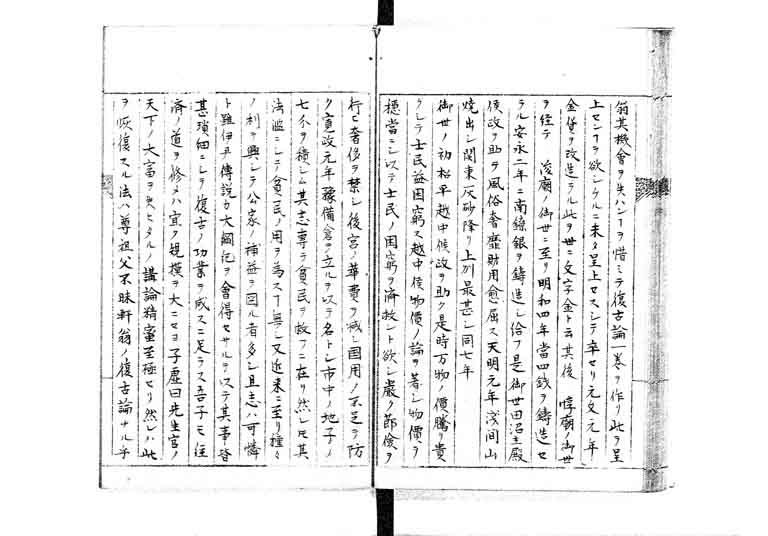 翁其機會ヲ失ハンヿヲ惜ミテ復古論一巻ヲ作リ此ヲ呈
上センヿヲ欲シケルニ未タ呈上セスシテ卒セリ元文元年
金貨ヲ改造ラル此ヲ世ニ文字金ト云其後 惇廟ノ御世
ヲ経テ 浚廟ノ御世ニ至リ明和四年當四錢ヲ鋳造セ
ラル安永二年ニ南鐐銀ヲ鋳造シ給フ是御世田沼主殿
侯政ヲ助ヲ風俗奢靡財用愈屈ス天明元年浅间山
燒出シ関東灰砂降リ上州最甚シ同七年
御世ノ初松平越中侯政ヲ助ク是時万物ノ價騰リ貴
クシテ士民益困窮ス越中侯物價ノ論ヲ著シ物價ヲ
穏當ニシ以テ士民ノ困窮ヲ濟救シト欲シ嚴ク節儉ヲ
行ヒ奢侈ヲ禁シ後宮ノ華費ヲ减シ国用ノ不足ヲ防
ク寛政元年豫備倉ヲ立ルヲ以テ名トシ市中ノ地子ノ
七分ヲ積シム其志専ラ貧民ヲ救フニ在リ然レモ其
法濫ニシテ貧民ノ用ヲ為スヿ無シ又近来ニ至リ種々
ノ利ヲ興シテ公家ノ補益ヲ図ル者多シ且志ハ可憐
ト雖伊尹傳説カ大綱紀ヲ會得セサルヲ以テ其事皆
甚瑣細ニシテ復古ノ功業ヲ成スニ足ラス吾子モ経
濟ノ道ヲ修メハ宜ク規模ヲ大ニセヨ子虚曰先生宮ノ
天下ノ大富ヲ失ヒタルノ講論精蜜至極セリ然レハ此
ヲ恢復スル法ハ尊祖父不昧軒翁ノ復古論ナル乎